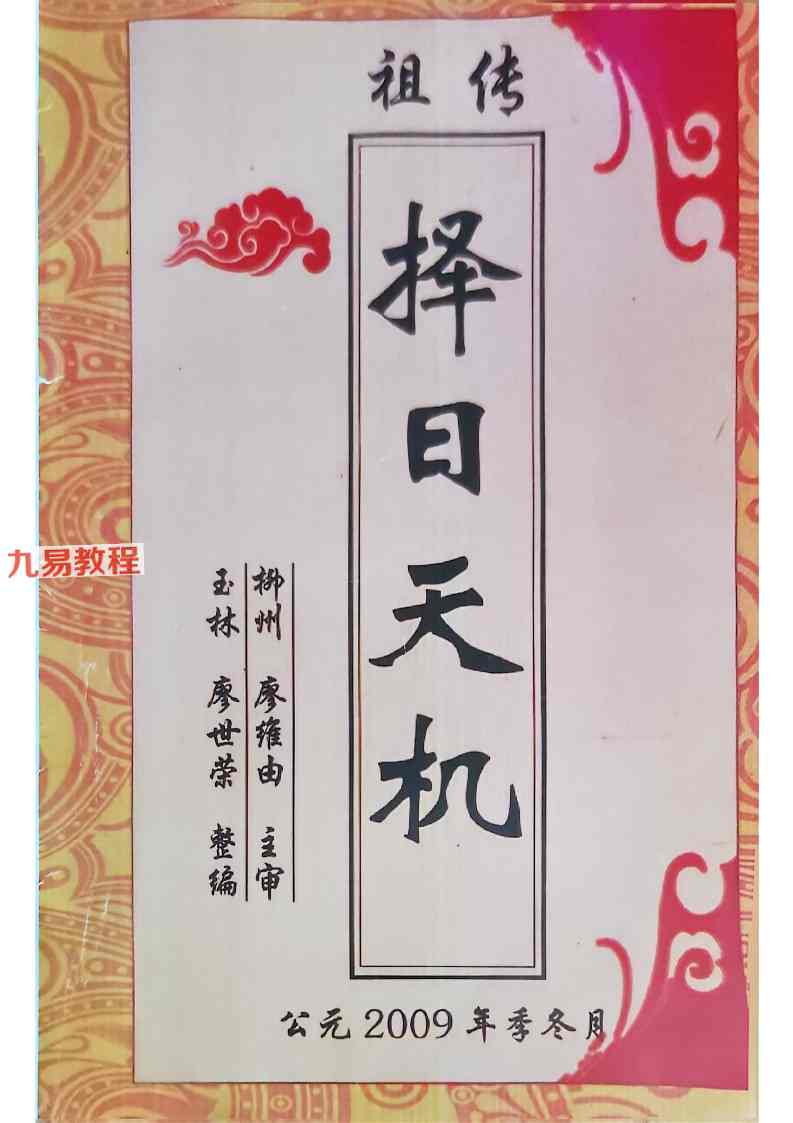 祖传
择日天机
柳州 廖维由 主审
玉林 廖世荣 整编
公元2009年季冬月
九易教程